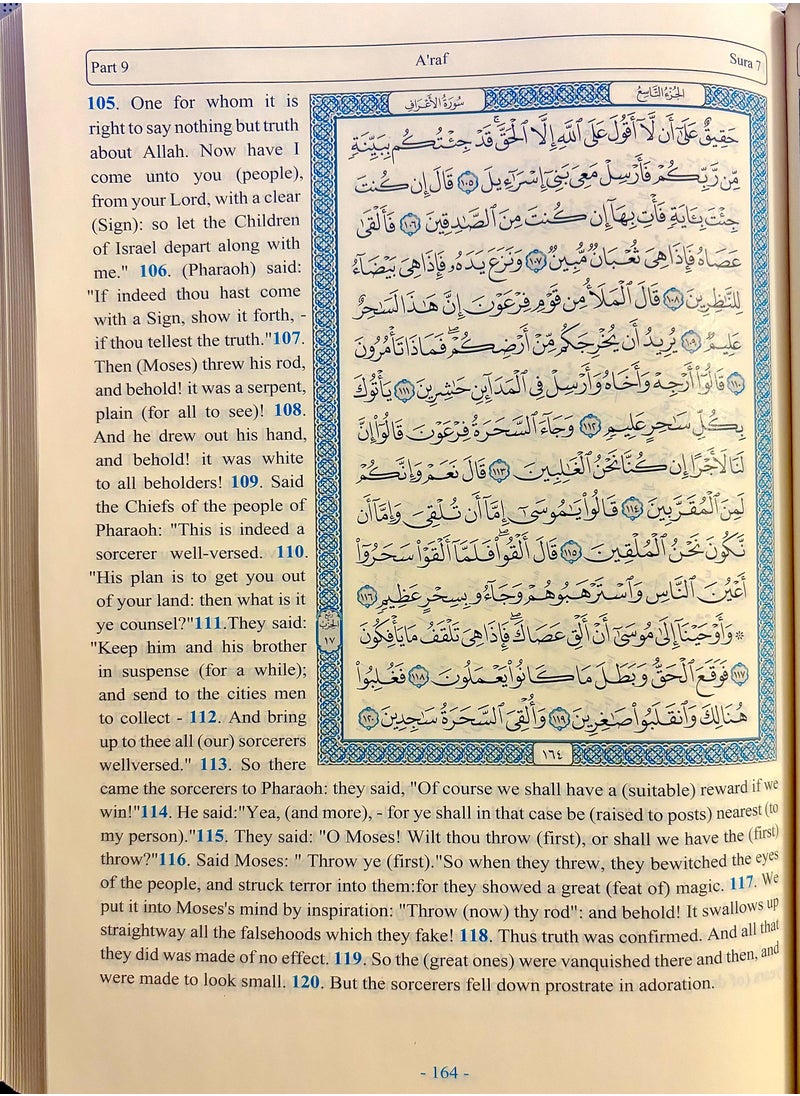 Part 9
A'raf
Sura 7
105. One for whom it is
right to say nothing but truth
about Allah. Now have I
come unto you (people),
from your Lord, with a clear
(Sign): so let the Children
of Israel depart along with
me." 106. (Pharaoh) said:
"If indeed thou hast come
with a Sign, show it forth, -
if thou tellest the truth."107.
Then (Moses) threw his rod,
and behold! it was a serpent,
plain (for all to see)! 108.
And he drew out his hand,
and behold! it was white
to all beholders! 109. Said
the Chiefs of the people of
Pharaoh: "This is indeed a
sorcerer well-versed. 110.
"His plan is to get you out
of your land: then what is it
ye counsel?"111.They said:
"Keep him and his brother
in suspense (for a while);
and send to the cities men
to collect - 112. And bring
up to thee all (our) sorcerers
wellversed." 113. So there
الجزء التاسع
سورة الأعراف
حَقِيقٌ عَلَىٰٓ أَن لَّآ أَقُولَ عَلَى ٱللَّهِ إِلَّا ٱلْحَقَّ ۚ قَدْ جِئْتُكُم بِبَيِّنَةٍ
مِّن رَّبِّكُمْ فَأَرْسِلْ مَعِىَ بَنِىٓ إِسْرَٰٓءِيلَ ١٠٥ قَالَ إِن كُنتَ
جِئْتَ بِـَٔايَةٍ فَأْتِ بِهَآ إِن كُنتَ مِنَ ٱلصَّٰدِقِينَ ١٠٦ فَأَلْقَىٰ
عَصَاهُ فَإِذَا هِىَ ثُعْبَانٌ مُّبِينٌ ١٠٧ وَنَزَعَ يَدَهُۥ فَإِذَا هِىَ بَيْضَآءُ
لِلنَّٰظِرِينَ ١٠٨ قَالَ ٱلْمَلَأُ مِن قَوْمِ فِرْعَوْنَ إِنَّ هَٰذَا لَسَٰحِرٌ
عَلِيمٌ ١٠٩ يُرِيدُ أَن يُخْرِجَكُم مِّنْ أَرْضِكُمْ ۖ فَمَاذَا تَأْمُرُونَ
١١٠ قَالُوٓا۟ أَرْجِهْ وَأَخَاهُ وَأَرْسِلْ فِى ٱلْمَدَآئِنِ حَٰشِرِينَ ١١١ يَأْتُوكَ
بِكُلِّ سَٰحِرٍ عَلِيمٍ ١١٢ وَجَآءَ ٱلسَّحَرَةُ فِرْعَوْنَ قَالُوٓا۟ إِنَّ
لَنَا لَأَجْرًا إِن كُنَّا نَحْنُ ٱلْغَٰلِبِينَ ١١٣ قَالَ نَعَمْ وَإِنَّكُمْ
لَمِنَ ٱلْمُقَرَّبِينَ ١١٤ قَالُوا۟ يَٰمُوسَىٰٓ إِمَّآ أَن تُلْقِىَ وَإِمَّآ أَن
نَّكُونَ نَحْنُ ٱلْمُلْقِينَ ١١٥ قَالَ أَلْقُوا۟ ۖ فَلَمَّآ أَلْقَوْا۟ سَحَرُوٓا۟
أَعْيُنَ ٱلنَّاسِ وَٱسْتَرْهَبُوهُمْ وَجَآءُو بِسِحْرٍ عَظِيمٍ ١١٦
۞ وَأَوْحَيْنَآ إِلَىٰ مُوسَىٰٓ أَنْ أَلْقِ عَصَاكَ ۖ فَإِذَا هِىَ تَلْقَفُ مَا يَأْفِكُونَ
١١٧ فَوَقَعَ ٱلْحَقُّ وَبَطَلَ مَا كَانُوا۟ يَعْمَلُونَ ١١٨ فَغُلِبُوا۟
هُنَالِكَ وَٱنقَلَبُوا۟ صَٰغِرِينَ ١١٩ وَأُلْقِىَ ٱلسَّحَرَةُ سَٰجِدِينَ ١٢٠
الحزب
١٧
١٦٤
came the sorcerers to Pharaoh: they said, "Of course we shall have a (suitable) reward if we
win!"114. He said:"Yea, (and more), - for ye shall in that case be (raised to posts) nearest (to
my person)."115. They said: "O Moses! Wilt thou throw (first), or shall we have the (first)
throw?"116. Said Moses: " Throw ye (first)."So when they threw, they bewitched the eyes
of the people, and struck terror into them:for they showed a great (feat of) magic. 117. We
put it into Moses's mind by inspiration: "Throw (now) thy rod": and behold! It swallows up
straightway all the falsehoods which they fake! 118. Thus truth was confirmed. And all that
they did was made of no effect. 119. So the (great ones) were vanquished there and then, and
were made to look small. 120. But the sorcerers fell down prostrate in adoration.
- 164 -